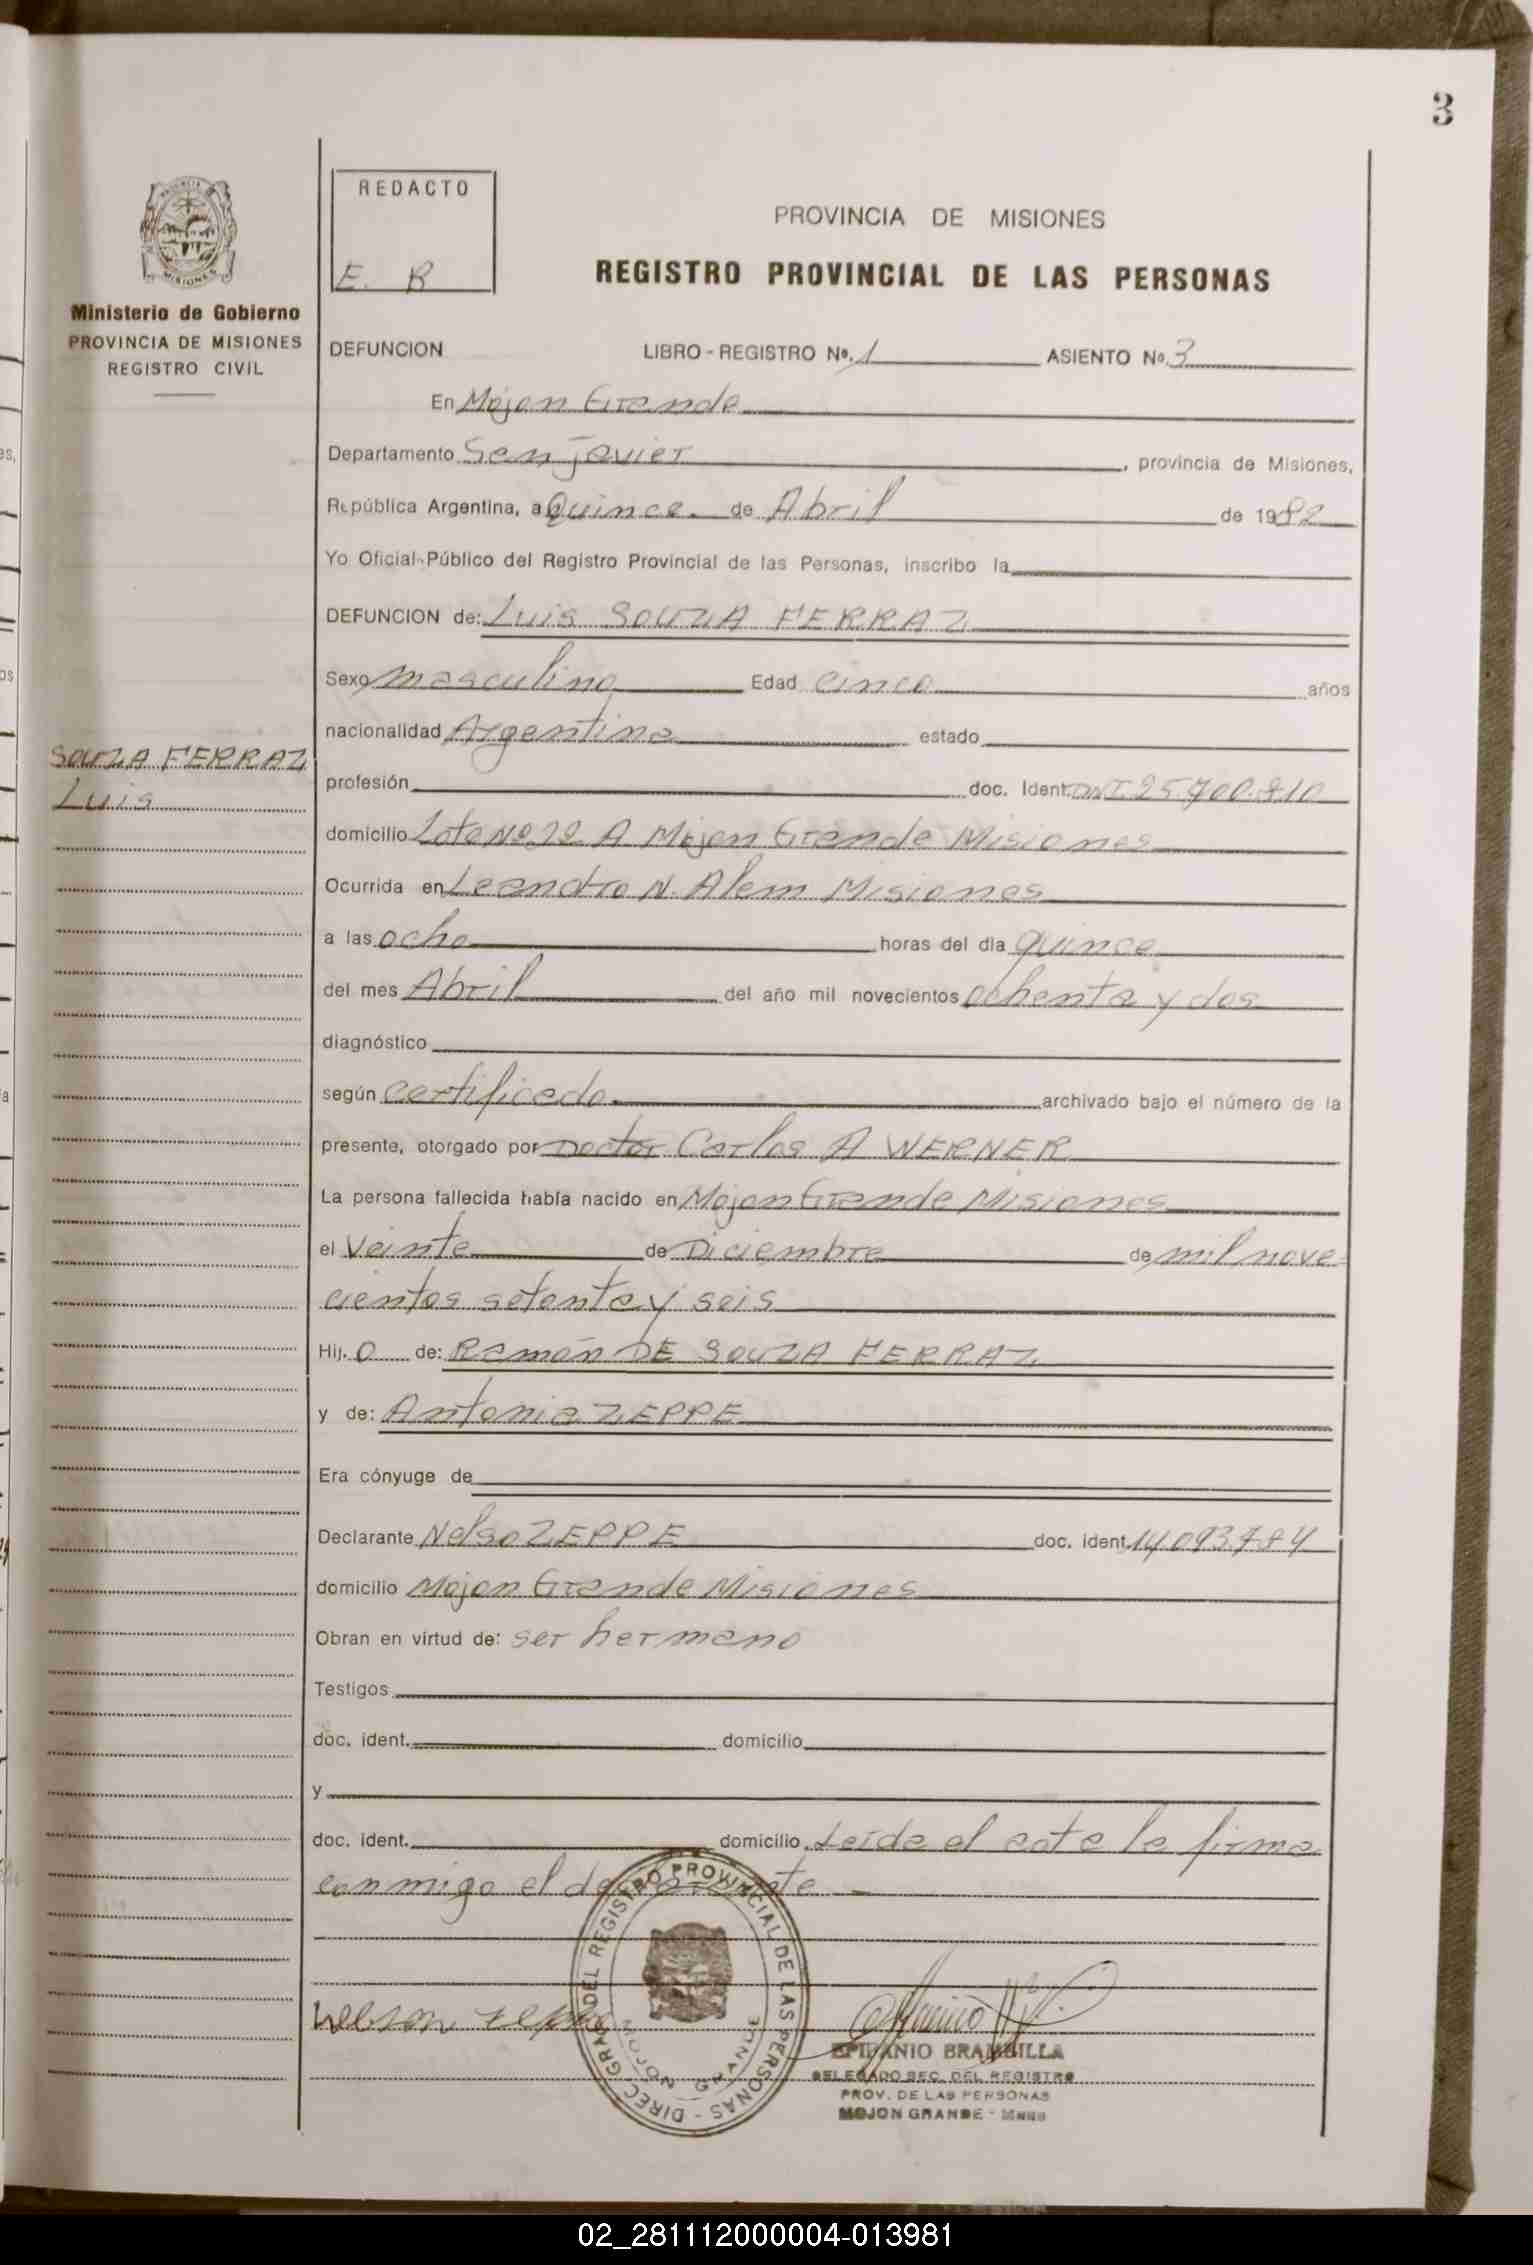 3
REDACTO
E. B
PROVINCIA DE MISIONES
REGISTRO PROVINCIAL DE LAS PERSONAS
MISIONES
Ministerio de Gobierno
PROVINCIA DE MISIONES
REGISTRO CIVIL
DEFUNCION LIBRO - REGISTRO Nº. 1 ASIENTO Nº. 3
En Mojon Grande
Departamento San Javier, provincia de Misiones,
República Argentina, a Quince de Abril de 1982
Yo Oficial Público del Registro Provincial de las Personas, inscribo la
DEFUNCION de: Luis SOUZA FERRAZ
Sexo masculino Edad cinco años
nacionalidad Argentina estado
SOUZA FERRAZ
Luis
profesión doc. Ident. DNI. 25.700.810
domicilio Lote Nº 22 A Mojon Grande Misiones
Ocurrida en Leandro N. Alem Misiones
a las ocho horas del día quince
del mes Abril del año mil novecientos ochenta y dos
diagnóstico
según certificado archivado bajo el número de la
presente, otorgado por Doctor Carlos A WERNER
La persona fallecida había nacido en Mojon Grande Misiones
el Veinte de Diciembre de mil nove-
cientos setenta y seis
Hij. o de: Ramón DE SOUZA FERRAZ
y de: Antonia ZEPPE
Era cónyuge de
Declarante Nelso ZEPPE doc. ident. 14.093.784
domicilio Mojon Grande Misiones
Obran en virtud de: ser hermano
Testigos
doc. ident. domicilio
y
doc. ident. domicilio. Leída el acta la firma
conmigo el declarante
DIREC GRAL DEL REGISTRO PROVINCIAL DE LAS PERSONAS -
MOJON GRANDE
Nelson Zeppe
EPIFANIO BRAMBILLA
DELEGADO SEC. DEL REGISTRO
PROV. DE LAS PERSONAS
MOJON GRANDE - Mnes
02_281112000004-013981